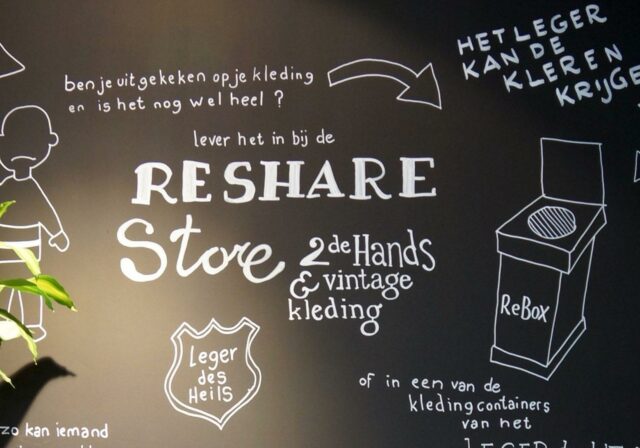 HET LEGER
KAN DE
KLEREN
KRIJGE
ben je uitgekeken op je kleding
en is het nog wel heel ?
lever het in bij de
RESHARE
Store
2de Hands
& vintage
kleding
ReBox
Leger
des
Heils
of in een van de
kledingcontainers
van het
zo kan iemand